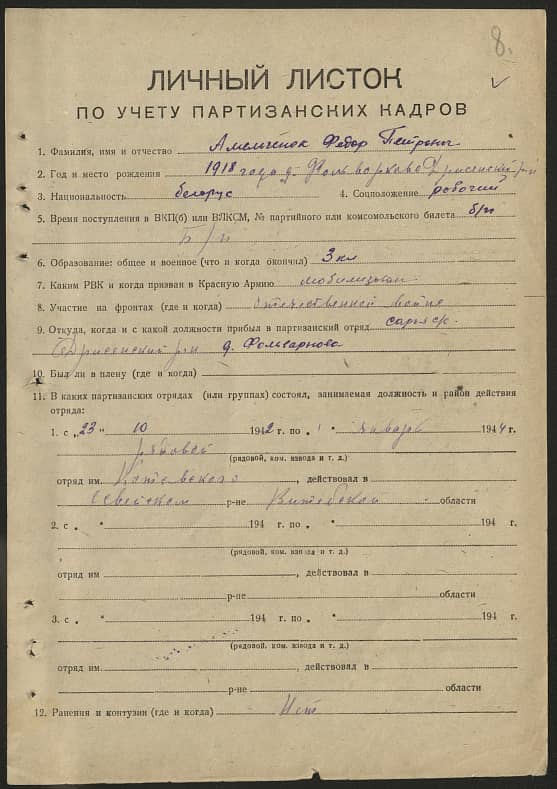 8.
ЛИЧНЫЙ ЛИСТОК
ПО УЧЕТУ ПАРТИЗАНСКИХ КАДРОВ
1. Фамилия, имя и отчество Амельченок Федор Петров
2. Год и место рождения 1918 года д. Фольварково Дрисенский р-н
3. Национальность белорус 4. Соцположение рабочий
5. Время поступления в ВКП(б) или ВЛКСМ, № партийного или комсомольского билета б/п
Б/п
6. Образование: общее и военное (что и когда окончил) 3 кл
7. Каким РВК и когда призван в Красную Армию мобилизован
8. Участие на фронтах (где и когда) Отечественной войне
9. Откуда, когда и с какой должности прибыл в партизанский отряд сарья с/с
Дрисенский р-н д.
10. Был ли в плену (где и когда)
11. В каких партизанских отрядах (или группах) состоял, занимаемая должность и район действия
отряда:
1. с „23" 10 1942 г. по " январь 1944 г.
рядовой
(рядовой, ком. взвода и т. д.)
отряд им Котовского, действовал в
Освейском р-не Витебской области
2. с „ " 194 г. по „ " 194 г.
(рядовой, ком. взвода и т. д.)
отряд им , действовал в
р-не области
3. с „ " 194 г. по „ " 194 г.
(рядовой, ком. взвода и т. д.)
отряд им , действовал в
р-не области
12. Ранения и контузии (где и когда) Нет